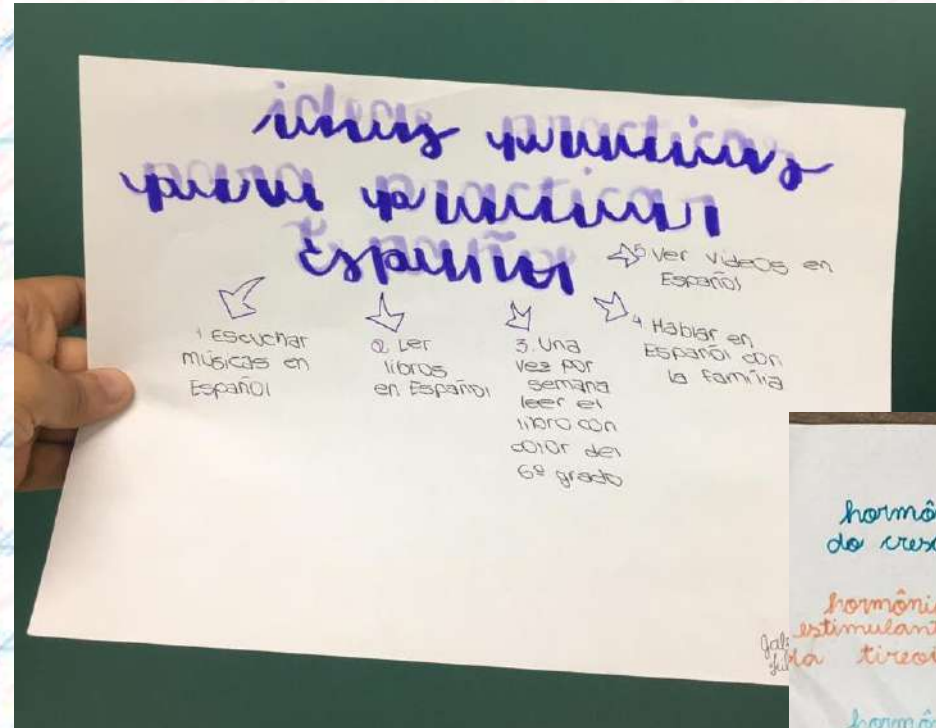 ideas practicas
para practicar
Español
1 Escuchar
músicas en
Español
2 Ler
libros
en Español
3. Una
vez por
semana
leer el
libro con
color del
6º grado
4 Hablar en
Español con
la família
5 Ver videos en
Español
hormôni
do cresc
hormôni
estimulant
da tireoi
hormôn